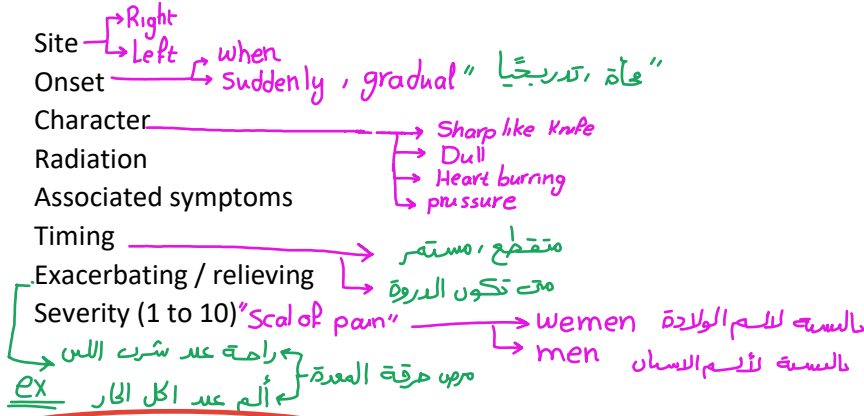 Site Right
Left
Onset when
Suddenly , gradual " فجأة ، تدريجيًا "
Character Sharp like Knife
Dull
Heart burning
pressure
Radiation
Associated symptoms
Timing متقطع ، مستمر
متى تكون الذروة
Exacerbating / relieving
Severity (1 to 10) "Scal of pain" women بالنسبة لألم الولادة
men بالنسبة لألم الاسنان
ex مرض حرقة المعدة
راحة عند شرب اللبن
ألم عند اكل الحار